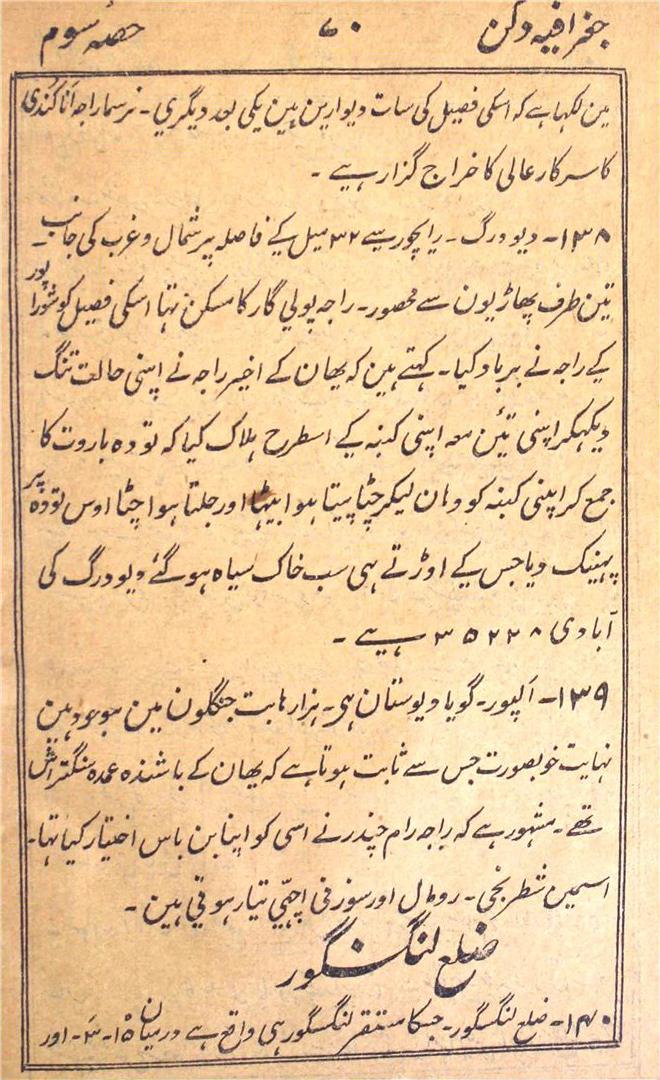 جغرافیہ دکن ۷۰ حصہ سوم
مین لکہا ہے کہ اسکی فصیل کی سات دیوارین ہین یکی بعد دیگری ۔ نرسما راجہ اناگندی
کا سرکار عالی کا خراج گزار ہیے ۔
۱۳۸ ۔ دیو ورگ ۔ رایچور سے ۳۲ میل کے فاصلہ پر شمال و غرب کی جانب
تین طرف پھاڑیون سے محصور ۔ راجہ پولی گار کا مسکن تہا اسکی فصیل کو شوراپور
کے راجہ نے برباد کیا ۔ کہتے ہین کہ یھان کے اخیر راجہ نے اپنی حالت تنگ
دیکہکر اپنی تئین معہ اپنی کنبہ کے اسطرح ہلاک کیا کہ تودہ باروت کا
جمع کر اپنی کنبہ کو وہان لیکر چٹا پیتا ہوا بیٹہا اور جلتا ہوا چٹا اوس تودہ پر
پہینک دیا جس کے اوڑتے ہی سب خاک سیاہ ہو گئے دیو ورگ کی
آبادی ۳۵۲۲۸ ہیے ۔
۱۳۹ ۔ الپور ۔ گویا دیوستان ہی ۔ ہزارہا بت جنگلون مین موجود ہین
نہایت خوبصورت جس سے ثابت ہوتا ہے کہ یھان کے باشندہ عمدہ سنگتراش
تھے ۔ مشہور ہے کہ راجہ رام چندر نے اسی کو اپنا بن باس اختیار کیا تہا ۔
اسمین شطرنجی ۔ رومال اور سوزنی اچھی تیار ہوتی ہین ۔
ضلع لنگسگور
۱۴۰ ۔ ضلع لنگسگور ۔ جسکا مستقر لنگسگور ہی واقع ہے درمیان ۱۵ ۔ ۳ ۔ اور